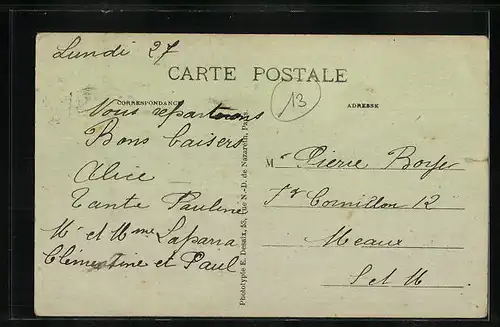 Lundi 27
CARTE POSTALE
CORRESPONDANCE
ADRESSE
13
Nous repartirons
Bons baisers
Alice
Tante Pauline
Mr et Mme Laparra
Clémentine et Paul
Mr Pierre
Fg Cornillon 12
Meaux
S et M
Phototypie E. Desaix, 53, rue N.-D. de Nazareth, Paris.